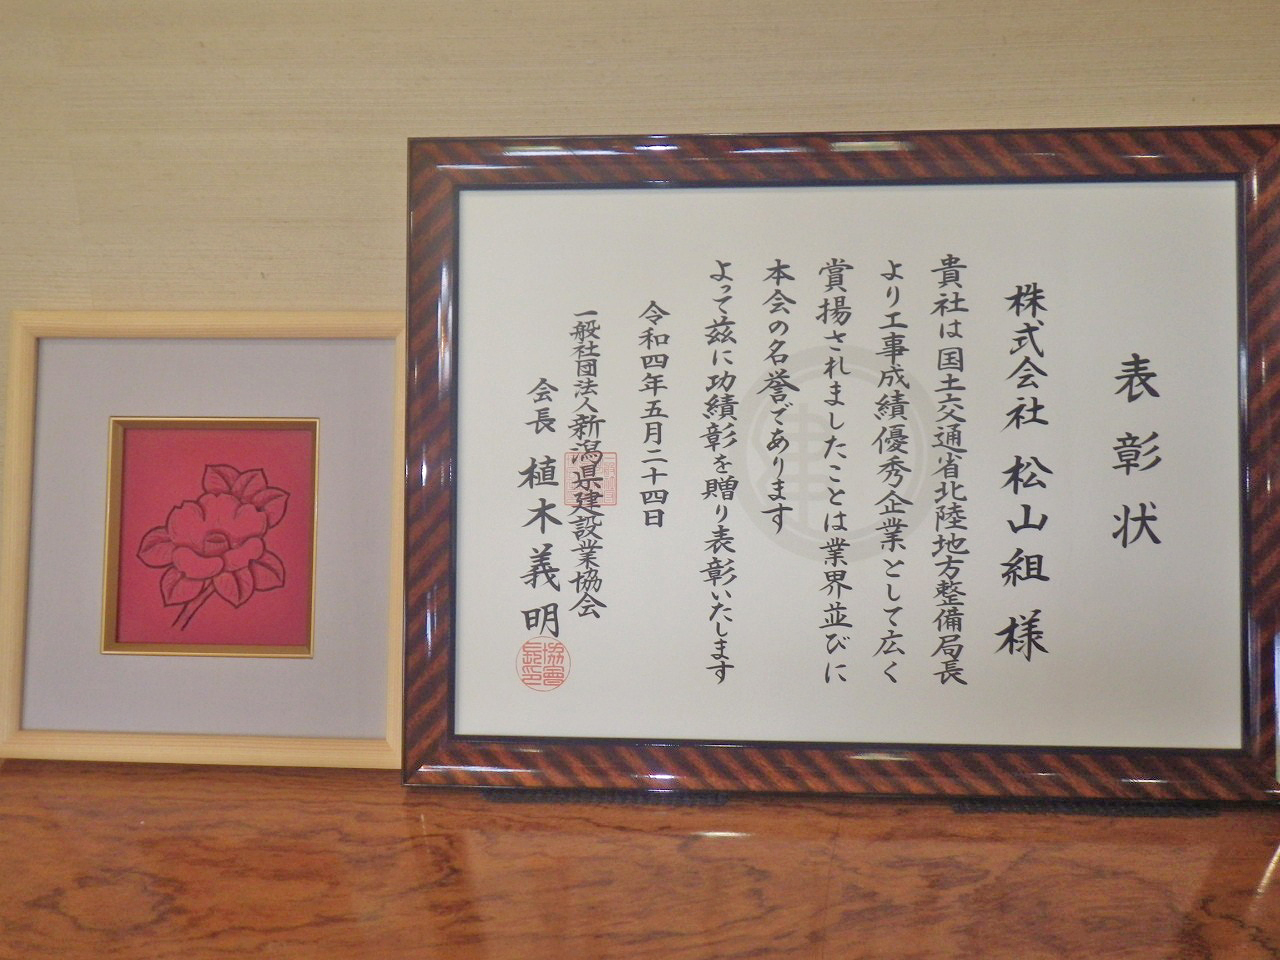 表彰状
株式会社 松山組 様
貴社は国土交通省北陸地方整備局長
より工事成績優秀企業として広く
賞揚されましたことは業界並びに
本会の名誉であります
よって茲に功績彰を贈り表彰いたします
令和四年五月二十四日
一般社団法人新潟県建設業協会
会長 植木義明
協會
長印